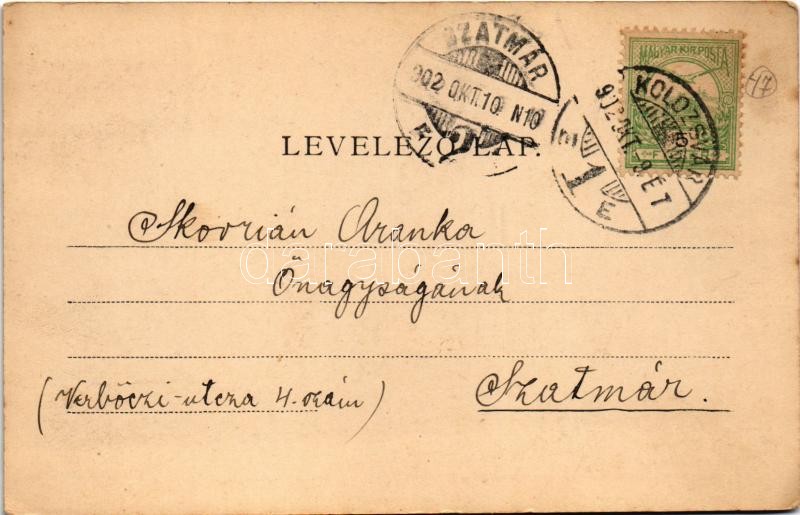 SZATMÁR
902 OKT.10 N10
MAGYAR KIR. POSTA
KOLOZSVÁR
902 OKT 9 É7
1
E
5
47
LEVELEZŐ-LAP.
Skovrián Aranka
Őnagyságának
darabanth
(Verbőczi-utcza 4. szám)
Szatmár.